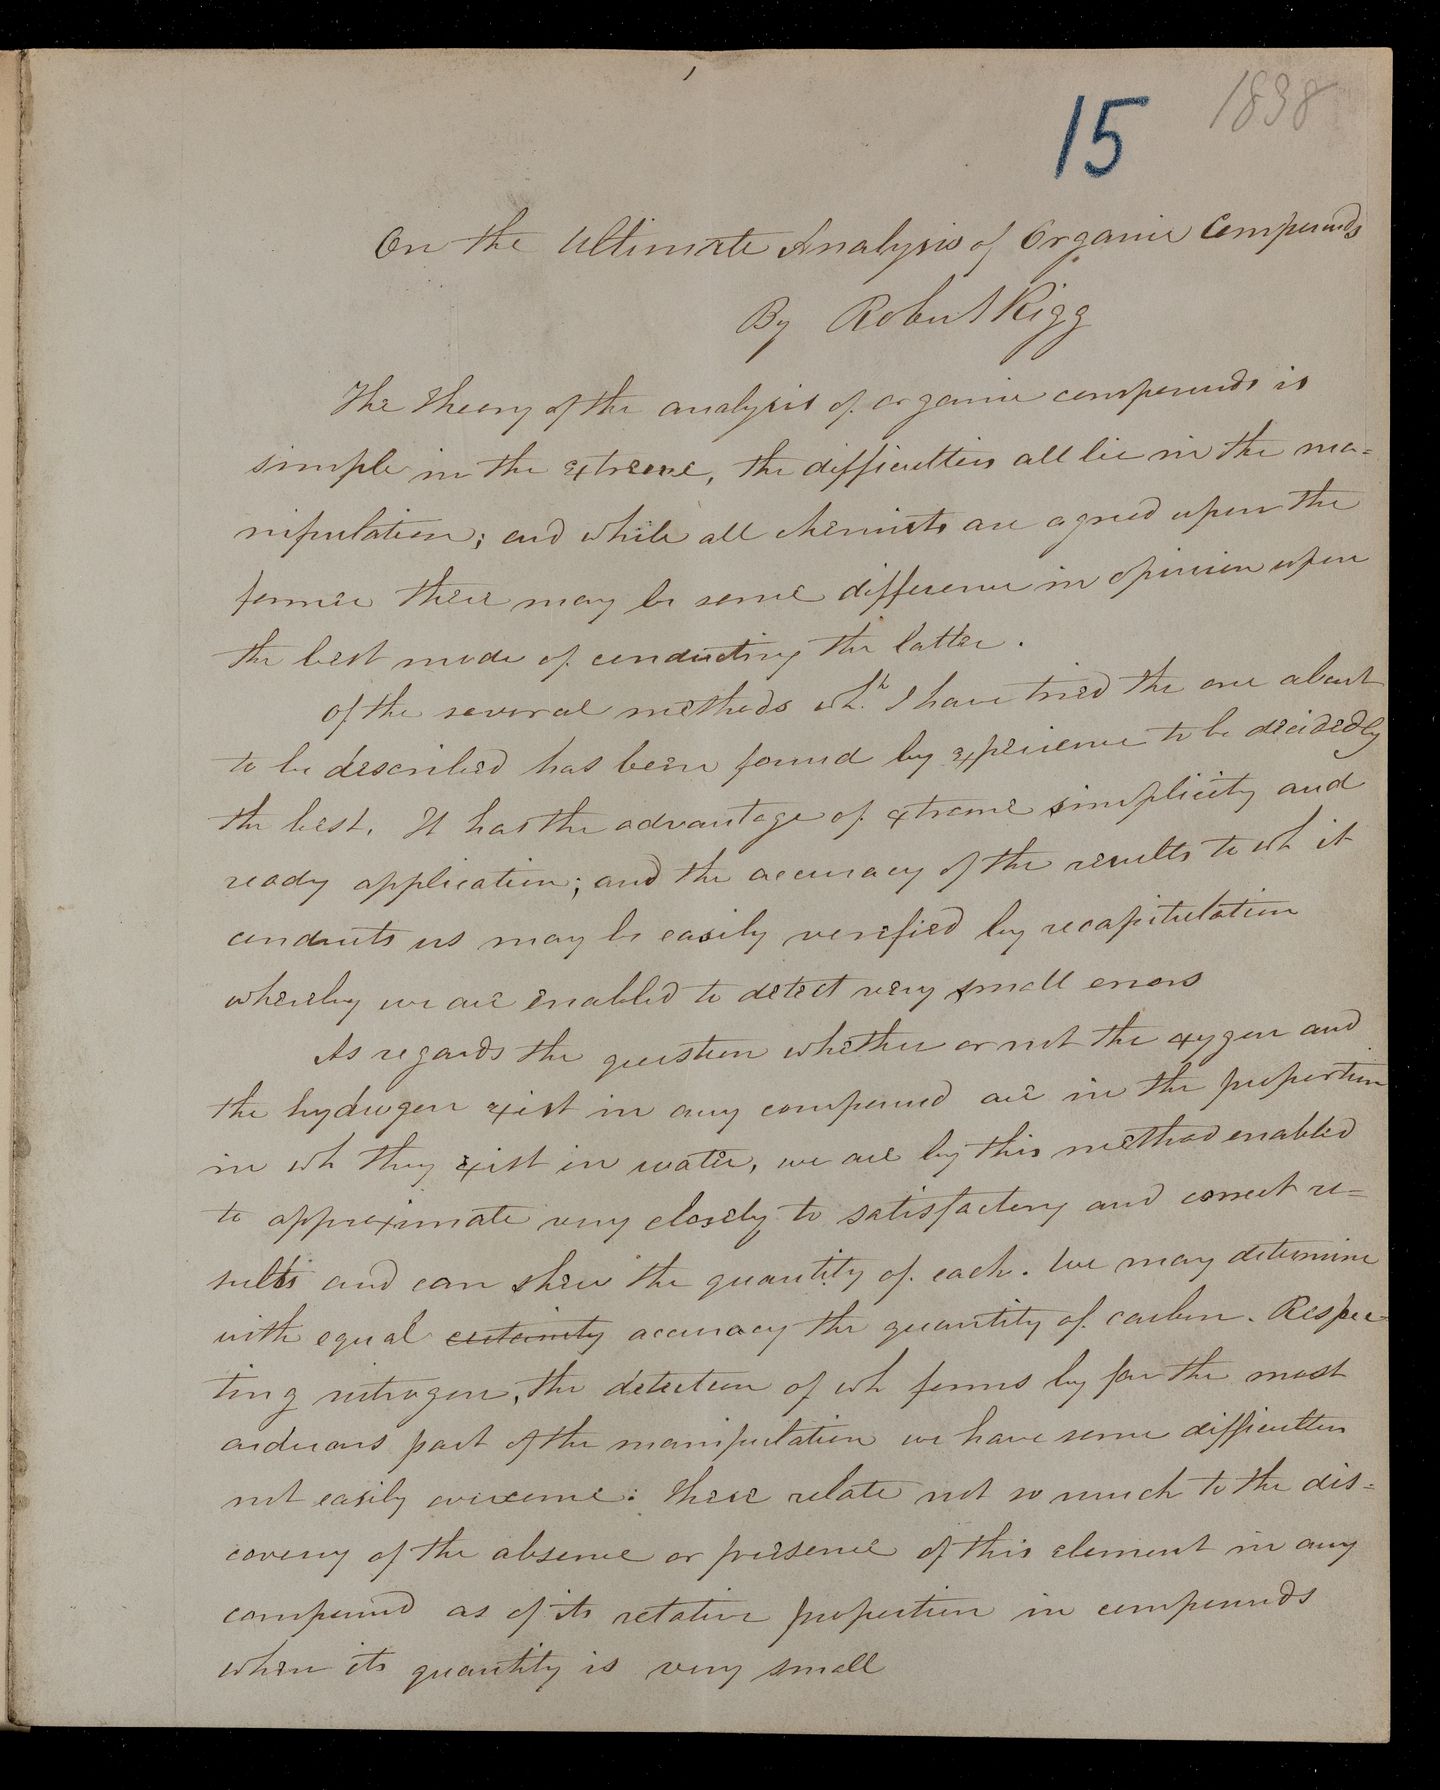 15 1838
On the Ultimate Analysis of Organic Compounds
By Robert Rigg
The theory of the analysis of organic compounds is
simple in the extreme, the difficulties all lie in the ma=
nipulation; and while all chemists are agreed upon the
former there may be some difference in opinion upon
the best mode of conducting the latter.
Of the several methods wh.h I have tried the one about
to be described has been found by experience to be decidedly
the best. It has the advantage of extreme simplicity and
ready application; and the accuracy of the results to wh it
conducts us may be easily verified by recapitulation
whereby we are enabled to detect very small errors
As regards the question whether or not the oxygen and
the hydrogen exist in any compound are in the proportion
in wh they exist in water, we are by this method enabled
to approximate very closely to satisfactory and correct re=
sults and can shew the quantity of each. We may determine
with equal certainty accuracy the quantity of carbon. Respec=
ting nitrogen, the detection of wh forms by far the most
arduous part of the manipulation we have some difficulties
not easily overcome: these relate not so much to the dis=
covery of the absence or presence of this element in any
compound as of its relative proportion in compounds
when its quantity is very small